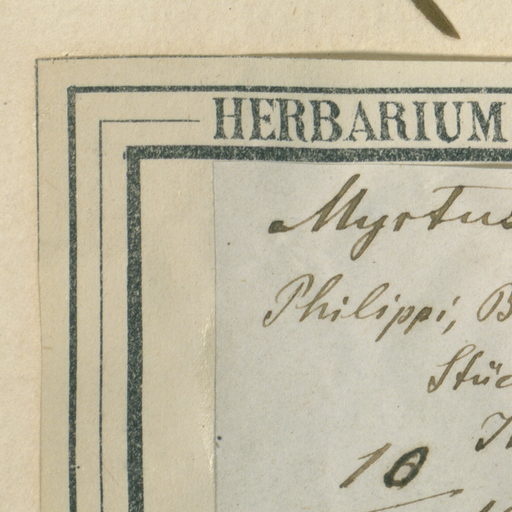 HERBARIUM
Myrtus
Philippi, B
Stüc
10